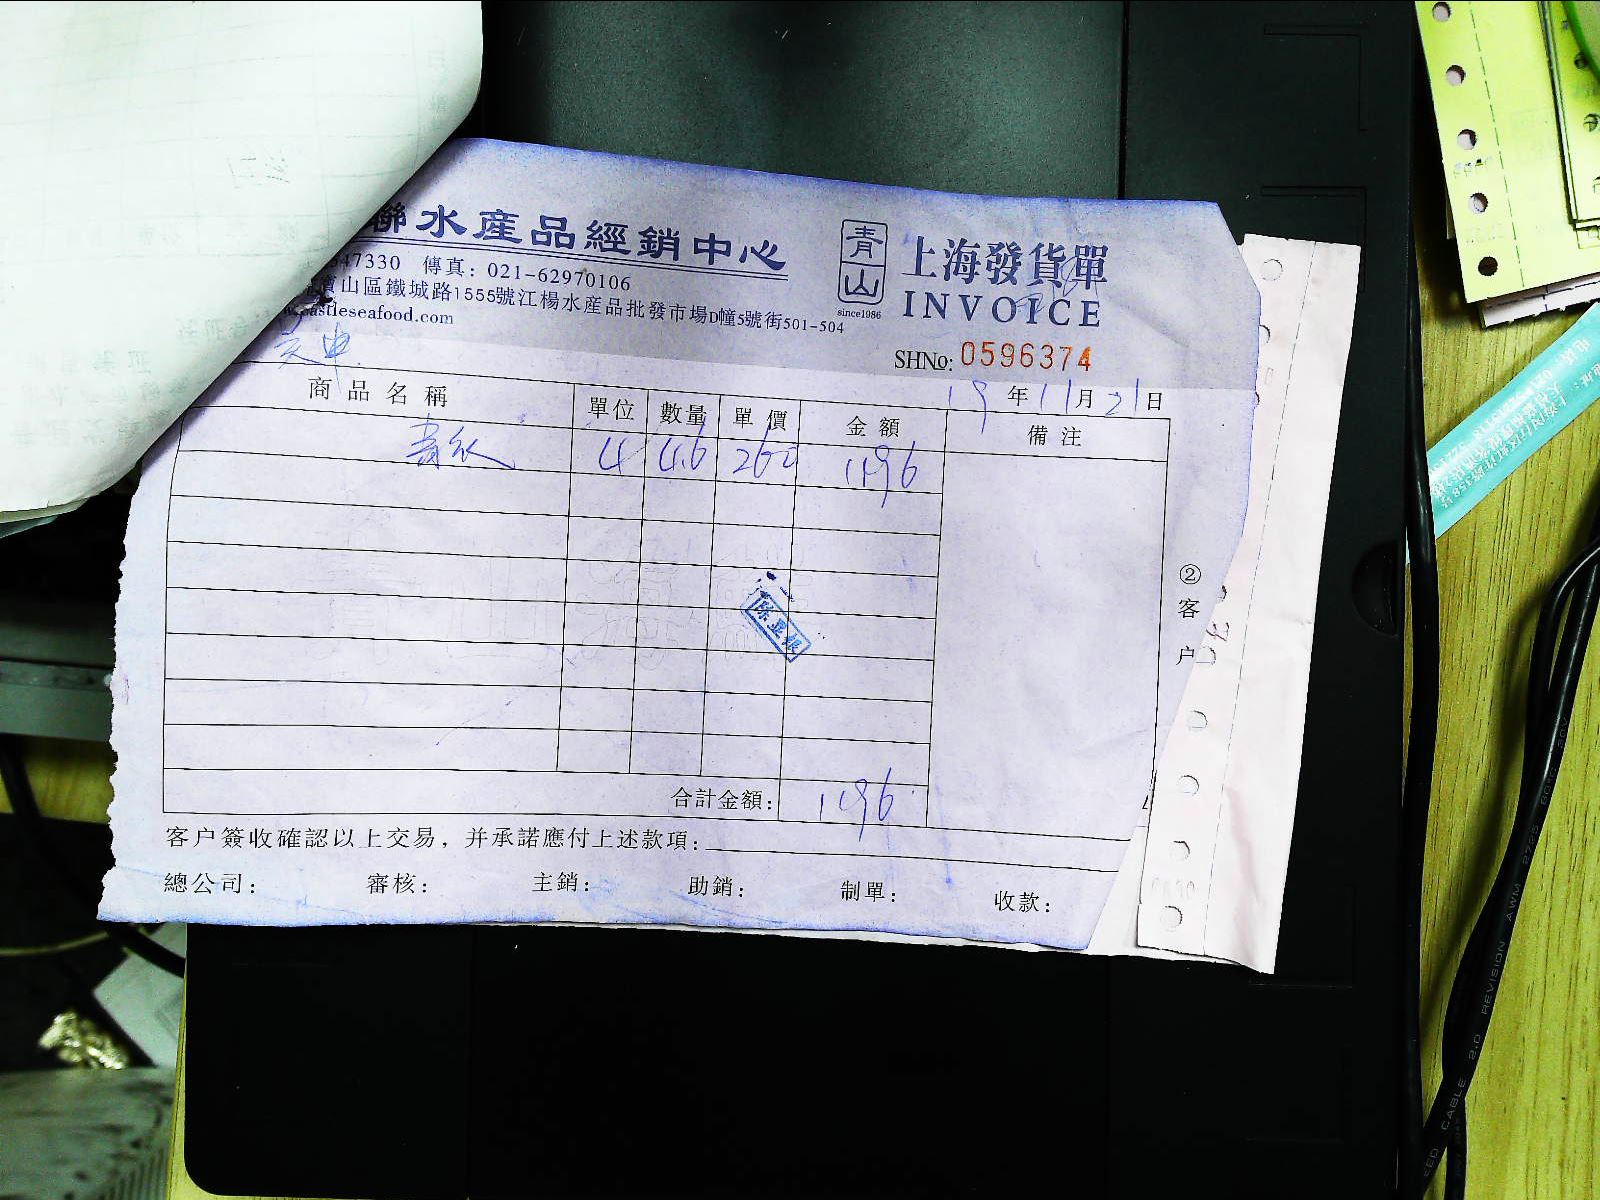 聯水產品經銷中心
47330 傳真: 021-62970106
寶山區鐵城路1555號江楊水產品批發市場D幢5號街501-504
castleseafood.com
青山
since1986
上海發貨單
INVOICE
SHNo: 0596374
19 年 11 月 21 日
商品名稱 單位 數量 單價 金額 備注
4 4.6 260 1196
陈亚银
合計金額: 1196
②客户
客户簽收確認以上交易, 并承諾應付上述款項:
總公司: 審核: 主銷: 助銷: 制單: 收款: